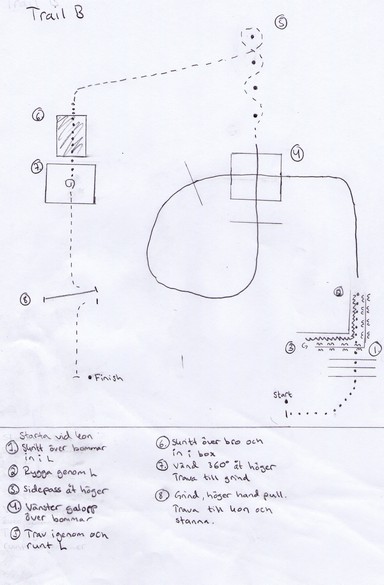 Trail B
5
6
4
7
2
8
3
G
1
Start
Finish
Starta vid kon
1 Skritt över bommar
in i L
2 Rygga genom L
3 Sidepass åt höger
4. Vänster galopp
över bommar
5 Trav igenom och
runt L
6 Skritt över bro och
in i box
7. Vänd 360° åt höger
Trava till grind
8 Grind, höger hand pull.
Trava till kon och
stanna.